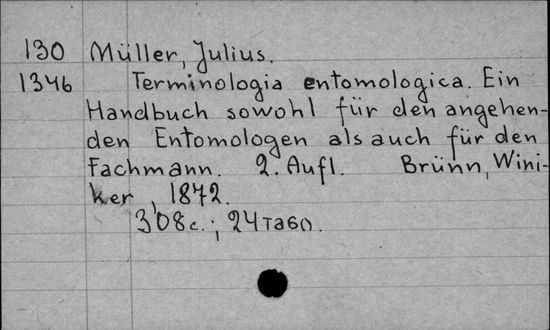 130 Müller, Julius.
1346 Terminologia entomologica. Ein
Handbuch sowohl für den angehen-
den Entomologen als auch für den
Fachmann. 2. Aufl. Brünn, Wini-
ker, 1872.
308 с.; 24 табл.